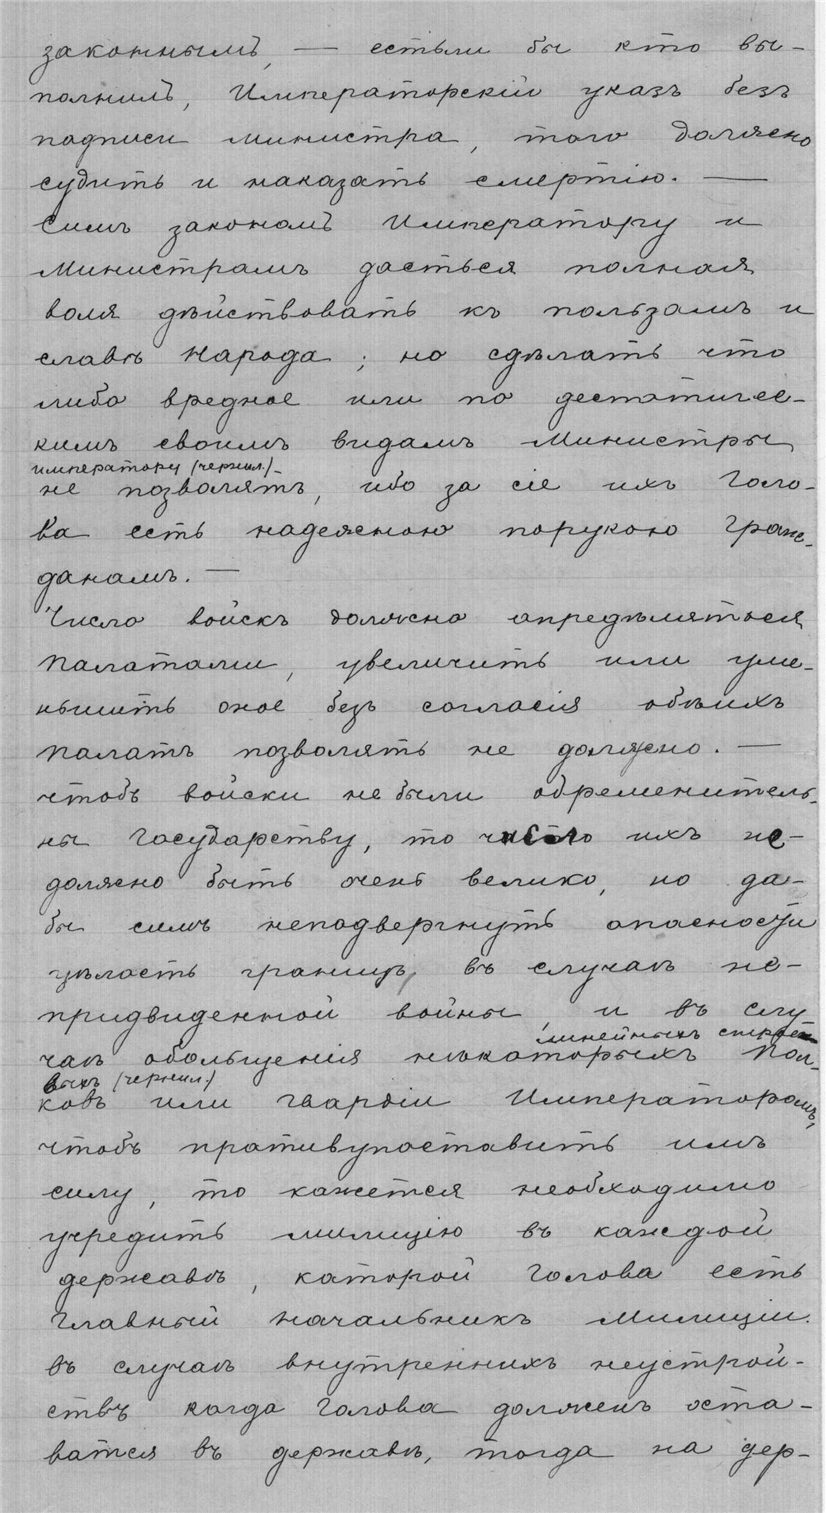 законнымъ, — естьли бы кто вы-
полнилъ, Императорскій указъ безъ
подписи министра, того должно
судить и наказать смертію. —
Симъ закономъ Императору и
Министрамъ дасться полная
воля дѣйствовать къ пользамъ и
славѣ Народа; но сдѣлать что
либо вредное или по деспотичес-
кимъ своимъ видамъ Министры
императору (чернил.)
не позволятъ, ибо за сіе ихъ Голо-
ва есть надежною порукою Граж-
данамъ. —
Число войскъ должно опредѣляться
Палатами, увеличить или уме-
ньшить оное безъ согласія обѣихъ
Палатъ позволять не должно. —
чтобъ войски не были обременитель-
ны Государству, то число ихъ не-
должно быть очень велико, но да-
бы симъ неподвергнуть опасности
цѣлость границъ, въ случаѣ не-
придвиденной войны, и въ слу
линейныхъ строе-
чаѣ обольщенія нѣкоторыхъ Пол-
выхъ (чернил.)
ковъ или гвардіи Императоромъ,
чтобъ противупоставить имъ
силу, то кажется необходимо
учредить милицію въ каждой
державѣ, каторой Голова есть
Главный начальникъ Милиціи.
въ случаѣ внутреннихъ неустрой-
ствъ когда Голова долженъ оста-
ватся въ державѣ, тогда на дер-